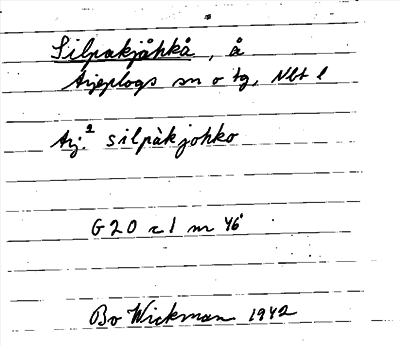 Silpakjåkkå, å
Arjeplogs sn o tg, Nbt l
Arj.² silpàkjohko
G 20 r 1 m 46
Bo Wickman 1942